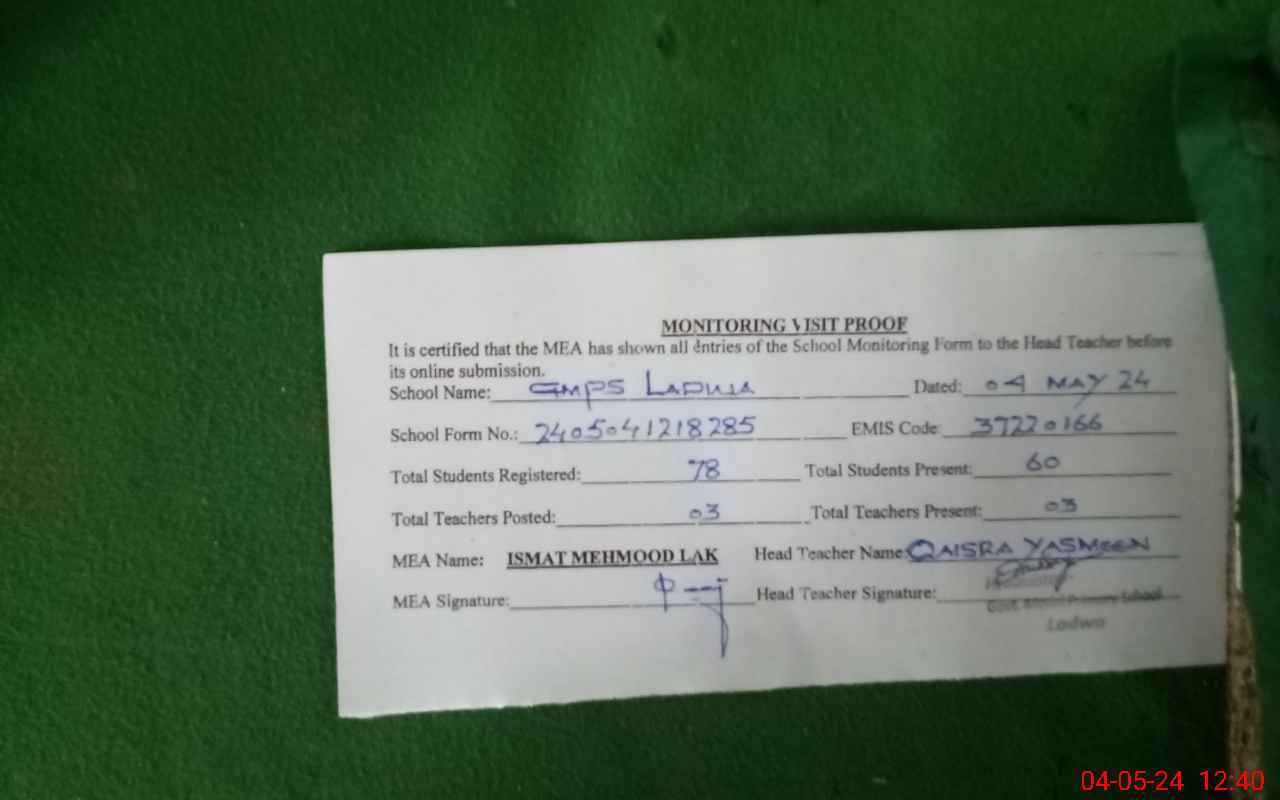 MONITORING VISIT PROOF
It is certified that the MEA has shown all entries of the School Monitoring Form to the Head Teacher before
its online submission.
School Name: GMPS LADWA Dated: 04 MAY 24
School Form No.: 2405041218285 EMIS Code: 37220166
Total Students Registered: 78 Total Students Present: 60
Total Teachers Posted: 03 Total Teachers Present: 03
MEA Name: ISMAT MEHMOOD LAK Head Teacher Name: QAISRA YASMEEN
MEA Signature: Head Teacher Signature:
Govt. Primary School
Ladwa
04-05-24 12:40